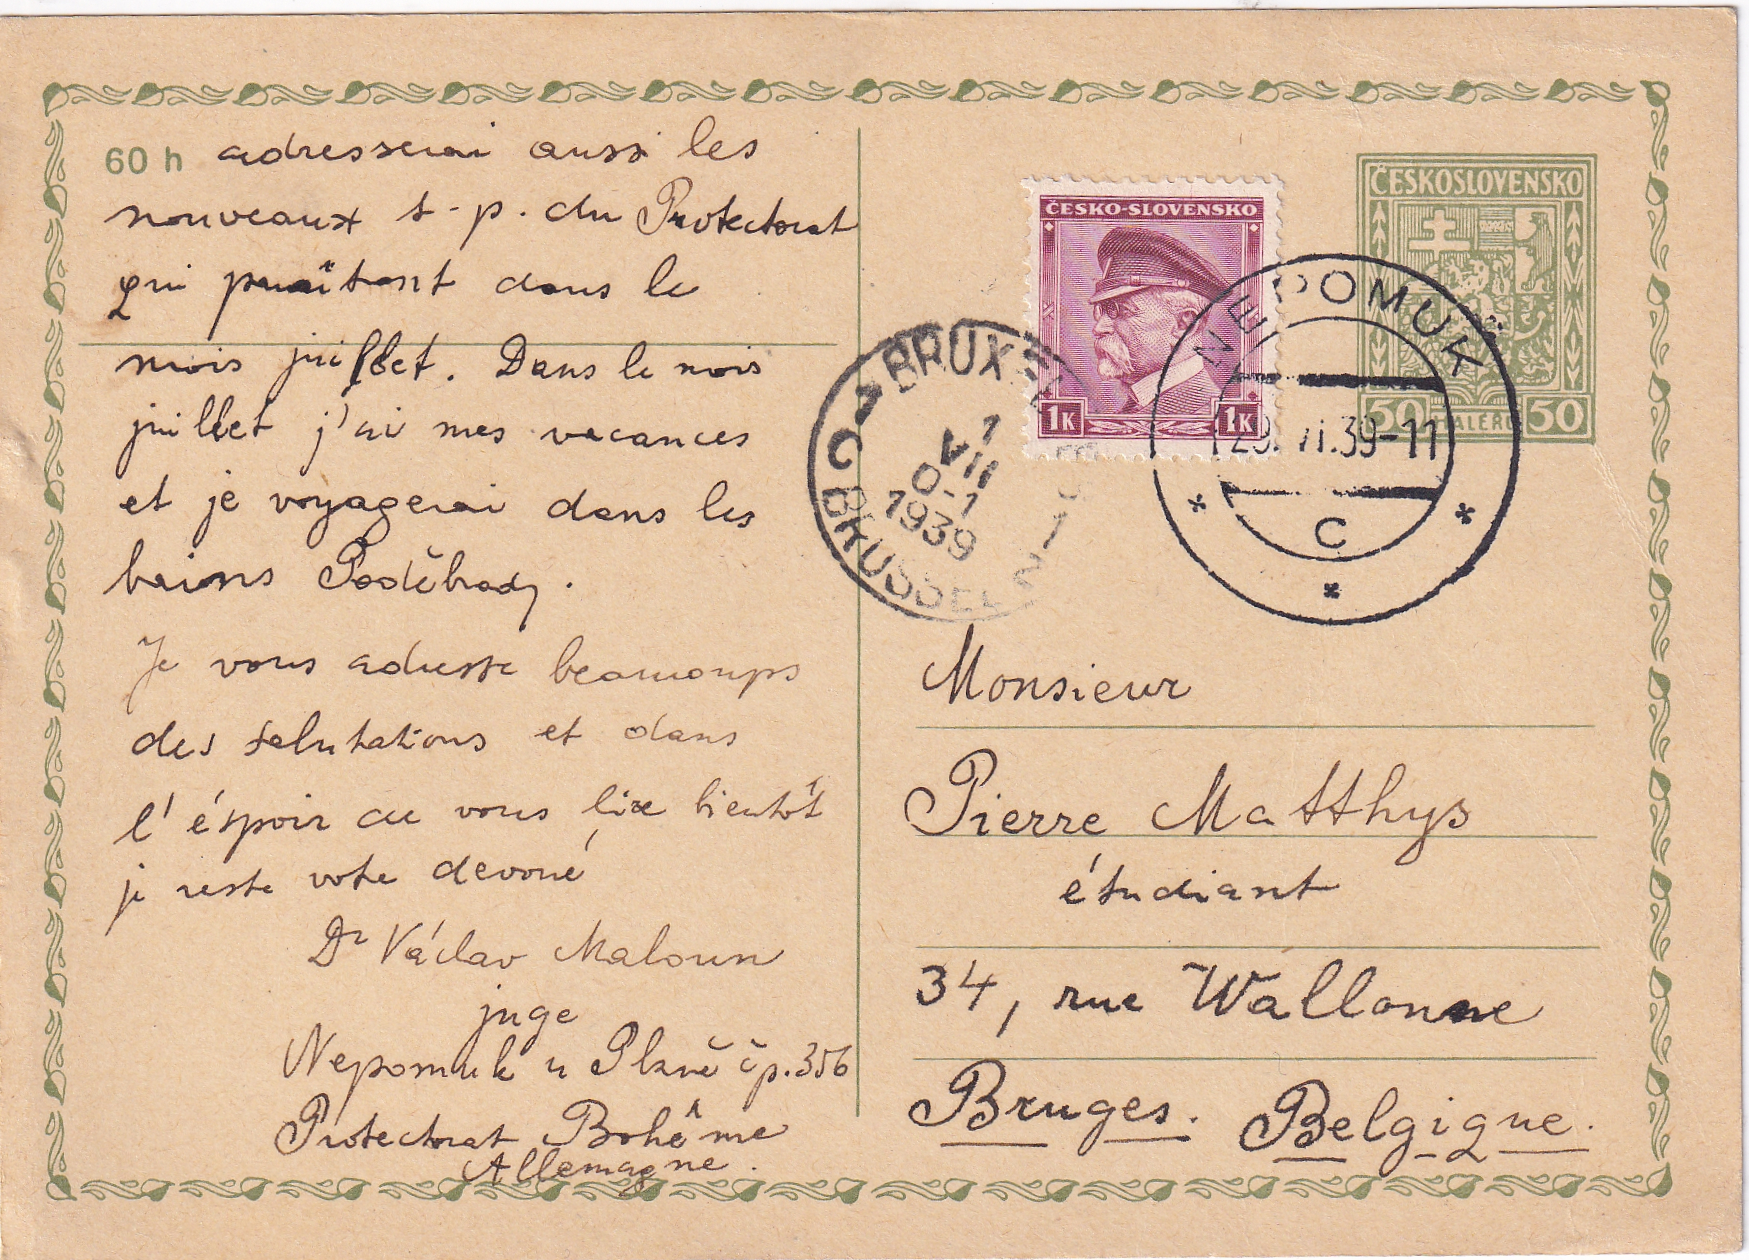 60 h adresserai aussi les
nouveaux t-p. du Protectorat
qui paraîtont dans le
mois juillet. Dans le mois
juillet j'ai mes vacances
et je voyagerai dans les
bains Poděbrady.
Je vous adresse beaucoups
des salutations et dans
l'éspoir de vous lire bientôt
je reste votre devoué
Dr Václav Maloun
juge
Nepomuk u Plzně čp. 356
Protectorat Bohême
Allemagne.
ČESKO-SLOVENSKO
1K 1K
ČESKOSLOVENSKO
50 HALÉŘŮ 50
NEPOMUK
29. VI. 39-11
C
BRUXEL
1
VII
0-1
1939
C BRUSSEL 2
Monsieur
Pierre Matthys
étudiant
34, rue Wallonne
Bruges. Belgique.